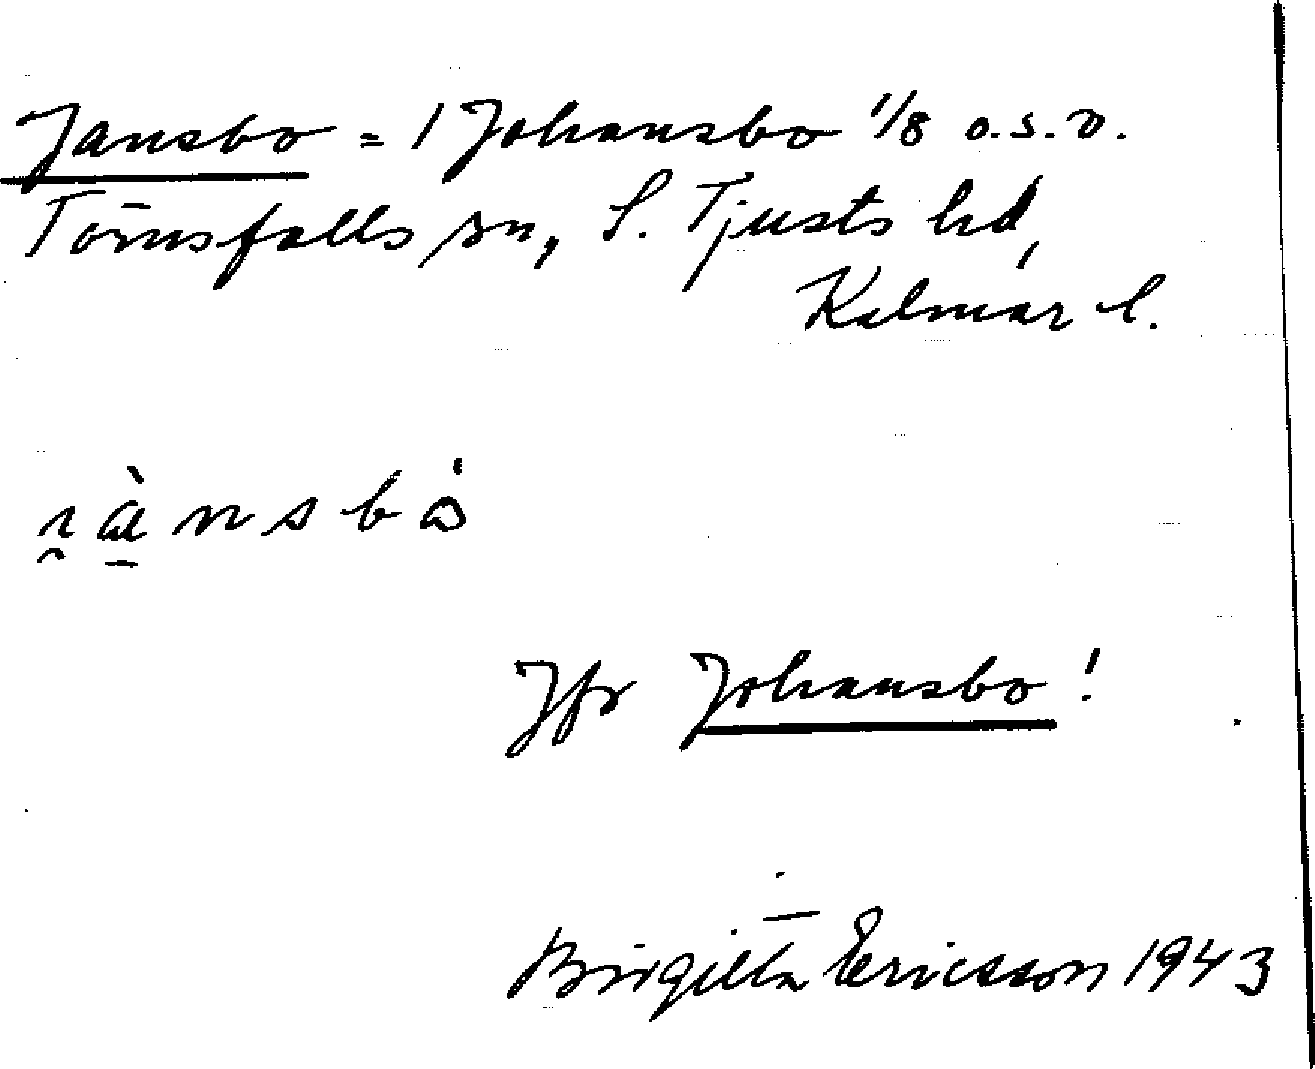 Jansbo = 1 Johansbo 1/8 o.s.v.
Törnsfalls sn, S. Tjusts hd,
Kalmar l.
Jfr Johansbo!
Birgitta Ericsson 1943